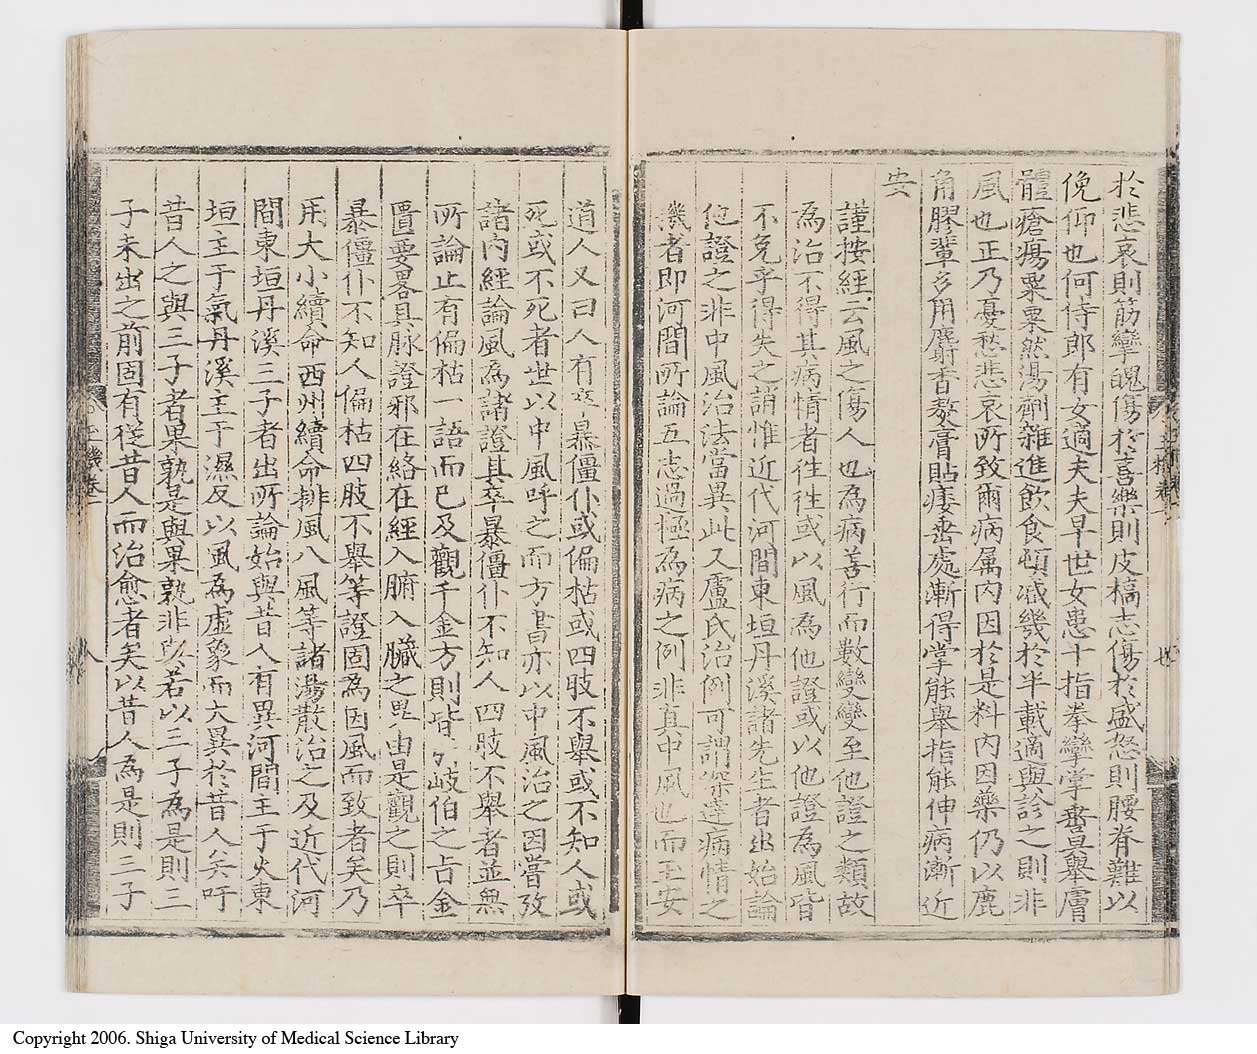 於悲哀則筋攣魄傷於喜樂則皮槁志傷於盛怒則腰脊難以
俛仰也何侍郎有女適夫夫早世女患十指拳攣掌垂莫舉膚
體瘡瘍粟粟然湯劑雜進飲食頓减幾於半載適與診之則非
風也正乃憂愁悲哀所致爾病属内因於是料内因藥仍以鹿
角膠輩多用麝香熬膏貼痿垂處漸得掌能舉指能伸病漸近
安
謹按經云風之傷人也為病善行而數變變至他證之類故
為治不得其病情者徃徃或以風為他證或以他證為風皆
不免乎得失之誚惟近代河間東垣丹溪諸先生者出始論
他證之非中風治法當異此又盧氏治例可謂深達病情之
機者即河間所論五志過極為病之例非真中風也而王安
道人又曰人有卒暴僵仆或偏枯或四肢不舉或不知人或
死或不死者世以中風呼之而方書亦以中風治之因嘗攷
諸内經論風為諸證其卒暴僵仆不知人四肢不舉者並無
所論止有偏枯一語而已及觀千金方則皆岐伯之占金
匱要畧具脉證邪在絡在經入腑入臟之異由是觀之則卒
暴僵仆不知人偏枯四肢不舉等證固為因風而致者矣乃
用大小續命西州續命排風八風等諸湯散治之及近代河
間東垣丹溪三子者出所論始與昔人有異河間主于火東
垣主于氣丹溪主于濕反以風為虚象而大異於昔人矣吁
昔人之與三子者果孰是與果孰非以若以三子為是則三
子未出之前固有從昔人而治愈者矣以昔人為是則三子
玉機卷一